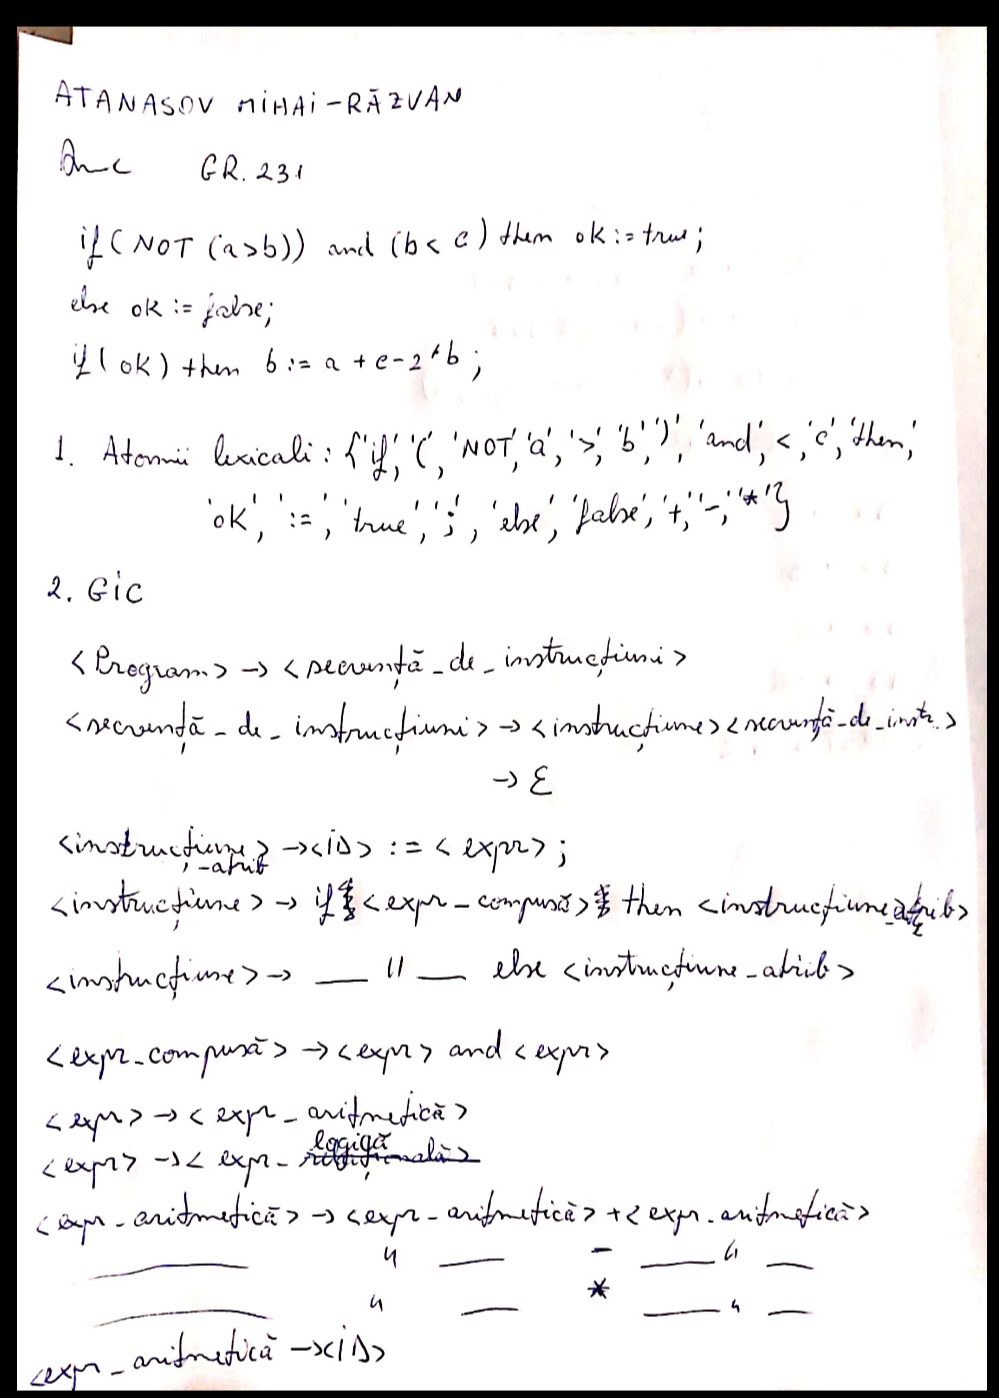 ATANASOV MIHAI-RĂZVAN
GR. 231
if(NOT (a>b)) and (b< c) then ok:=true;
else ok := false;
if(ok) then b:= a + c-2*b;
1. Atomii lexicali: {'if', '(', 'NOT', 'a', '>', 'b', ')', 'and', <, 'c', 'then',
'ok', ':=', 'true', ';', 'else', 'false', '+', '-', '*'}
2. GiC
<Program> → <secvență_de_instrucțiuni>
<secvență_de_instrucțiuni> → <instrucțiune><secvență_de_instr.>
→ ε
<instrucțiune_atrib> → <iD> := <expr>;
<instrucțiune> → if <expr_compusă> then <instrucțiune_atrib>
<instrucțiune> → — 11 — else <instrucțiune_atrib>
<expr_compusă> → <expr> and <expr>
<expr> → <expr_aritmetică>
<expr> → <expr_logică>
<expr_aritmetică> → <expr_aritmetică> + <expr_aritmetică>
— " — - — " —
— " — * — " —
<expr_aritmetică → <iD>